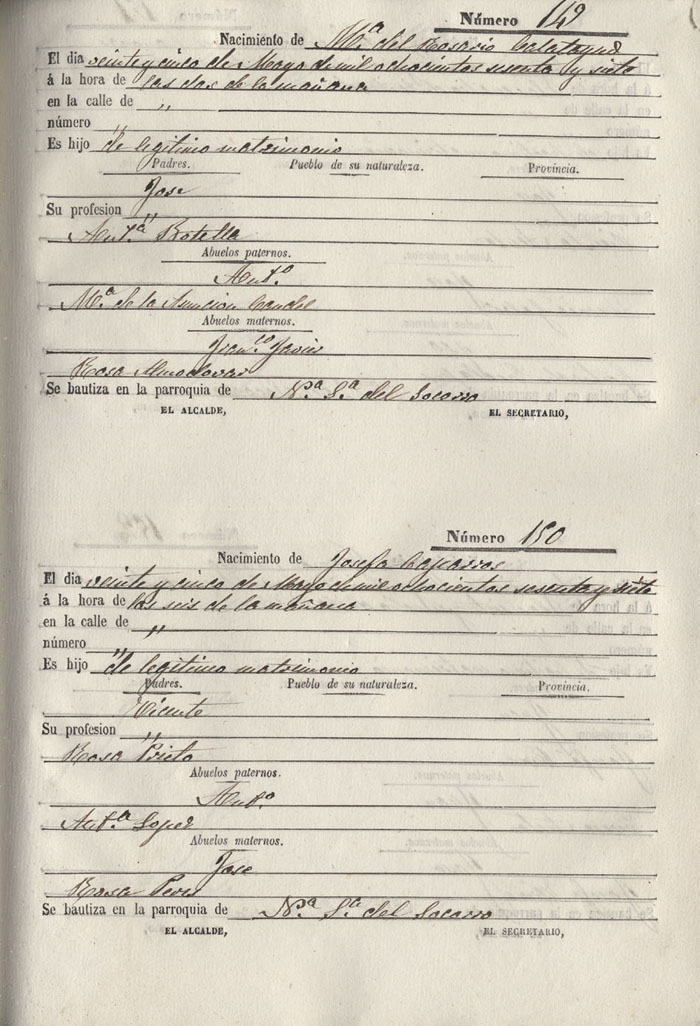 Número 149
Nacimiento de Mª del Rosario Calatayud
El dia veinte y cinco de Mayo de mil ochocientos sesenta y siete
á la hora de las dos de la mañana
en la calle de "
número "
Es hijo de legitimo matrimonio
Padres. Pueblo de su naturaleza. Provincia.
Jose
Su profesion "
Antª Botella
Abuelos paternos.
Antº
Mª de la Asuncion Candel
Abuelos maternos.
Franco Javier
Rosa Almodovar
Se bautiza en la parroquia de Nª Sª del Socorro
EL ALCALDE, EL SECRETARIO,
Número 150
Nacimiento de Josefa Caparros
El dia veinte y cinco de Mayo de mil ochocientos sesenta y siete
á la hora de las seis de la mañana
en la calle de "
número "
Es hijo de legitimo matrimonio
Padres. Pueblo de su naturaleza. Provincia.
Vicente
Su profesion "
Rosa Prieto
Abuelos paternos.
Antº
Antª Lopez
Abuelos maternos.
Jose
Rosa Peres
Se bautiza en la parroquia de Nª Sª del Socorro
EL ALCALDE, EL SECRETARIO,